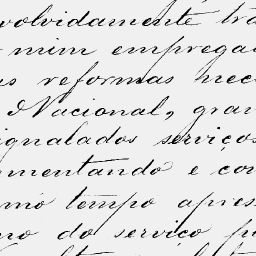 volvidamente tra
mim empregad
as reformas nec
Nacional, gran
ignalados serviços
mentando e con
mo tempo apres
no do serviço p